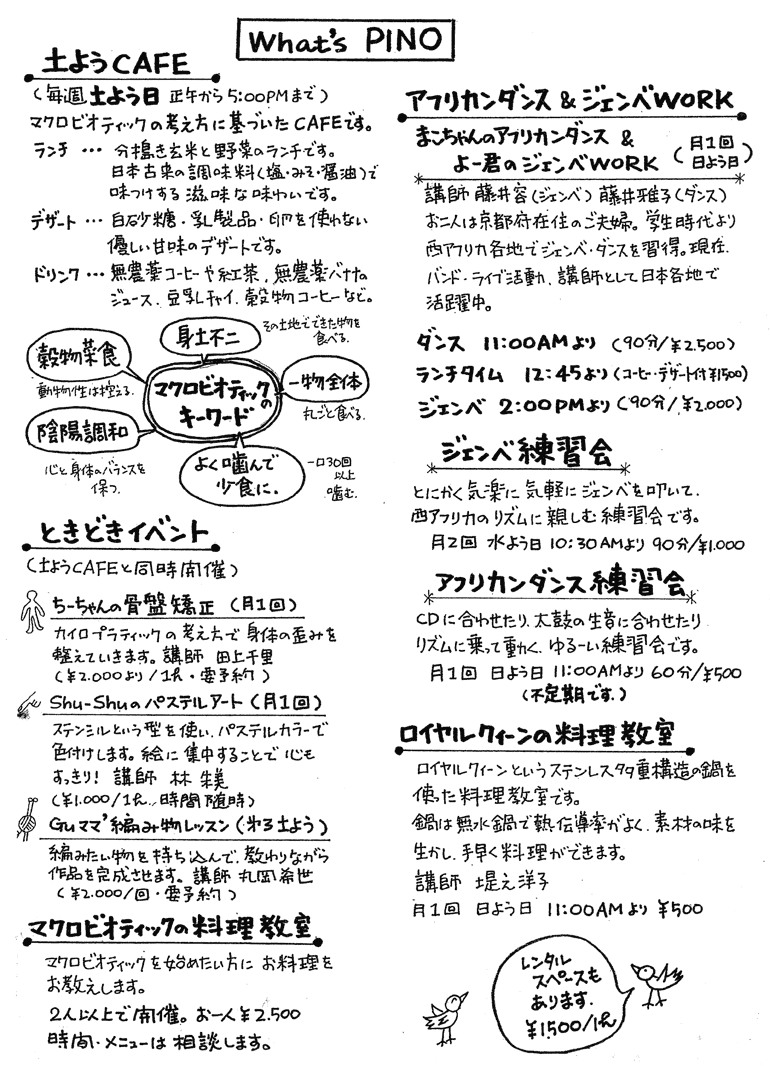 What's PINO
土ようCAFE
(毎週土よう日 正午から5:00PMまで)
マクロビオティックの考え方に基づいたCAFEです。
ランチ … 分搗き玄米と野菜のランチです。
日本古来の調味料(塩・みそ・醤油)で
味つけする滋味な味わいです。
デザート … 白砂糖・乳製品・卵を使わない
優しい甘味のデザートです。
ドリンク … 無農薬コーヒーや紅茶、無農薬バナナの
ジュース、豆乳チャイ、穀物コーヒーなど。
身土不二
その土地でできた物を
食べる。
穀物菜食
動物性は控える。
マクロビオティックの
キーワード
一物全体
丸ごと食べる。
陰陽調和
心と身体のバランスを
保つ。
よく噛んで
少食に。
一口30回
以上
噛む。
ときどきイベント
(土ようCAFEと同時開催)
ちーちゃんの骨盤矯正 (月1回)
カイロプラティックの考え方で身体の歪みを
整えていきます。講師 田上千里
(¥2.000より/1h・要予約)
Shu-Shuのパステルアート(月1回)
ステンシルという型を使い、パステルカラーで
色付けします。絵に集中することで心も
すっきり! 講師 林 朱美
(¥1.000/1h、時間随時)
Guママ'編み物レッスン(第3土よう)
編みたい物を持ち込んで、教わりながら
作品を完成させます。講師 丸岡希世
(¥2.000/回・要予約)
マクロビオティックの料理教室
マクロビオティックを始めたい方にお料理を
お教えします。
2人以上で開催。お一人¥2.500
時間・メニューは相談します。
アフリカンダンス&ジェンベWORK
まこちゃんのアフリカンダンス &
よー君のジェンベWORK
(月1回
日よう日)
講師 藤井容(ジェンベ) 藤井雅子(ダンス)
お二人は京都府在住のご夫婦。学生時代より
西アフリカ各地でジェンベ・ダンスを習得。現在、
バンド・ライブ活動、講師として日本各地で
活躍中。
ダンス 11:00AMより (90分/¥2.500)
ランチタイム 12:45より(コーヒー・デザート付¥1500)
ジェンベ 2:00PMより(90分/¥2.000)
ジェンベ練習会
とにかく気楽に気軽にジェンベを叩いて、
西アフリカのリズムに親しむ練習会です。
月2回 水よう日 10:30AMより 90分/¥1.000
アフリカンダンス練習会
CDに合わせたり、太鼓の生音に合わせたり
リズムに乗って動く、ゆるーい練習会です。
月1回 日よう日 11:00AMより 60分/¥500
(不定期です。)
ロイヤルクィーンの料理教室
ロイヤルクィーンというステンレス多重構造の鍋を
使った料理教室です。
鍋は無水鍋で熱伝導率がよく、素材の味を
生かし、手早く料理ができます。
講師 堤之洋子
月1回 日よう日 11:00AMより ¥500
レンタル
スペースも
あります。
¥1.500/1h